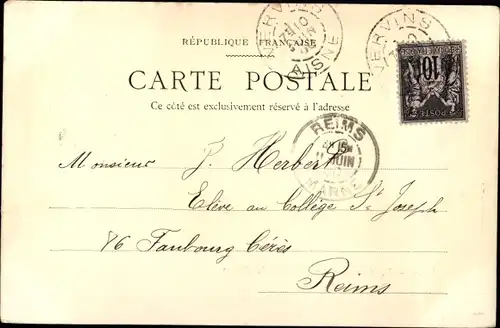 VERVINS
AISNE
VERVINS
RÉPUBLIQUE FRANÇAISE
CARTE POSTALE
Ce côté est exclusivement réservé à l'adresse
10
POSTES
REIMS
JUIN
MARNE
Monsieur J. Herbert
Elève au Collège St Joseph
86 Faubourg Cérès
Reims